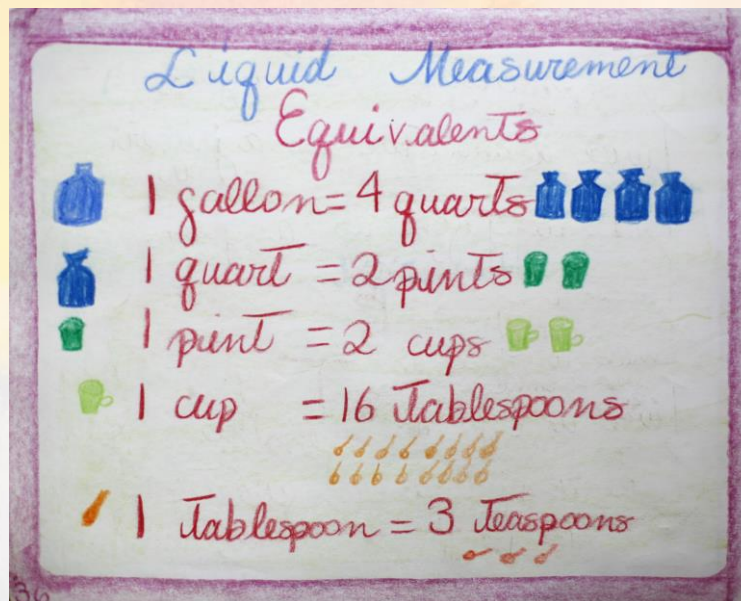 Liquid Measurement
Equivalents
1 gallon = 4 quarts
1 quart = 2 pints
1 pint = 2 cups
1 cup = 16 Tablespoons
1 Tablespoon = 3 Teaspoons
36